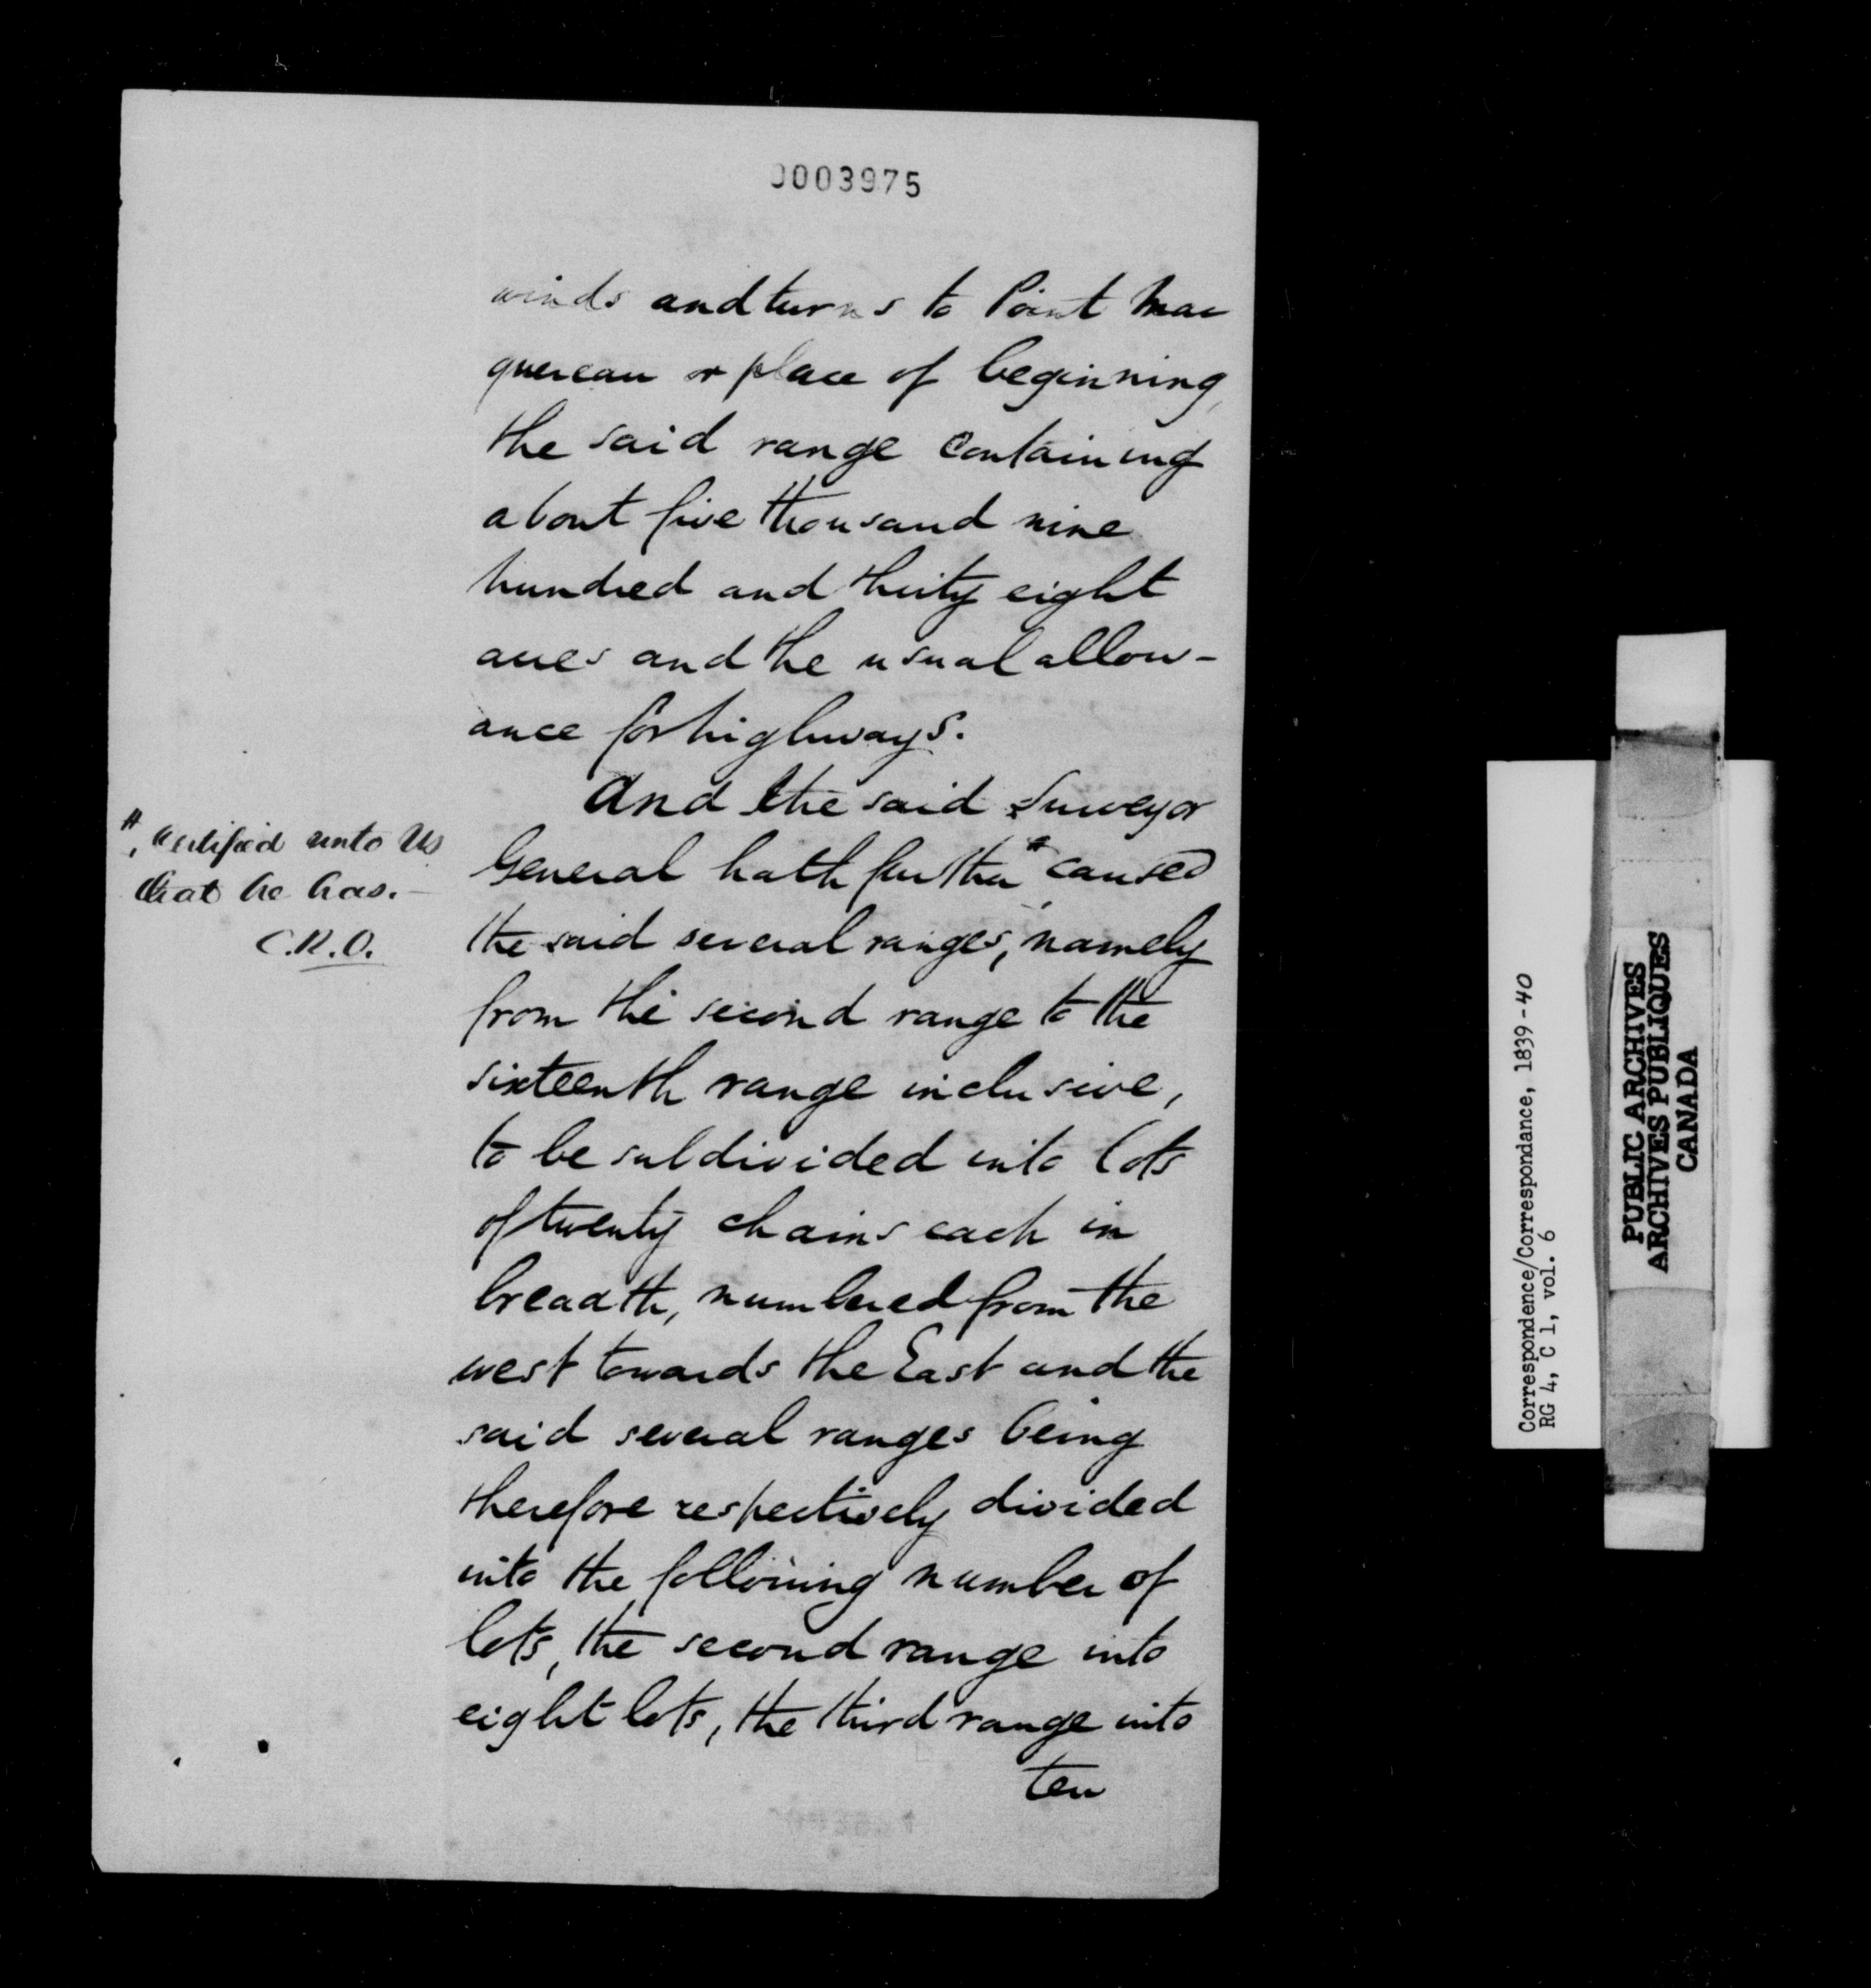 0003975
winds and turns to Point Mac
quereau or place of beginning,
the said range containing
about five thousand nine
hundred and thirty eight
acres and the usual allow-
ance for highways.
And the said Surveyor
General hath further # caused
the said several ranges, namely
from the second range to the
sixteenth range inclusive,
to be subdivided into lots
of twenty chains each in
breadth, numbered from the
west towards the East and the
said several ranges being
therefore respectively divided
into the following number of
lots, the second range into
eight lots, the third range into
ten
#, certified unto Us
that he has.—
C.R.O.
Correspondence/Correspondance, 1839-40
RG 4, C 1, vol. 6
PUBLIC ARCHIVES
ARCHIVES PUBLIQUES
CANADA